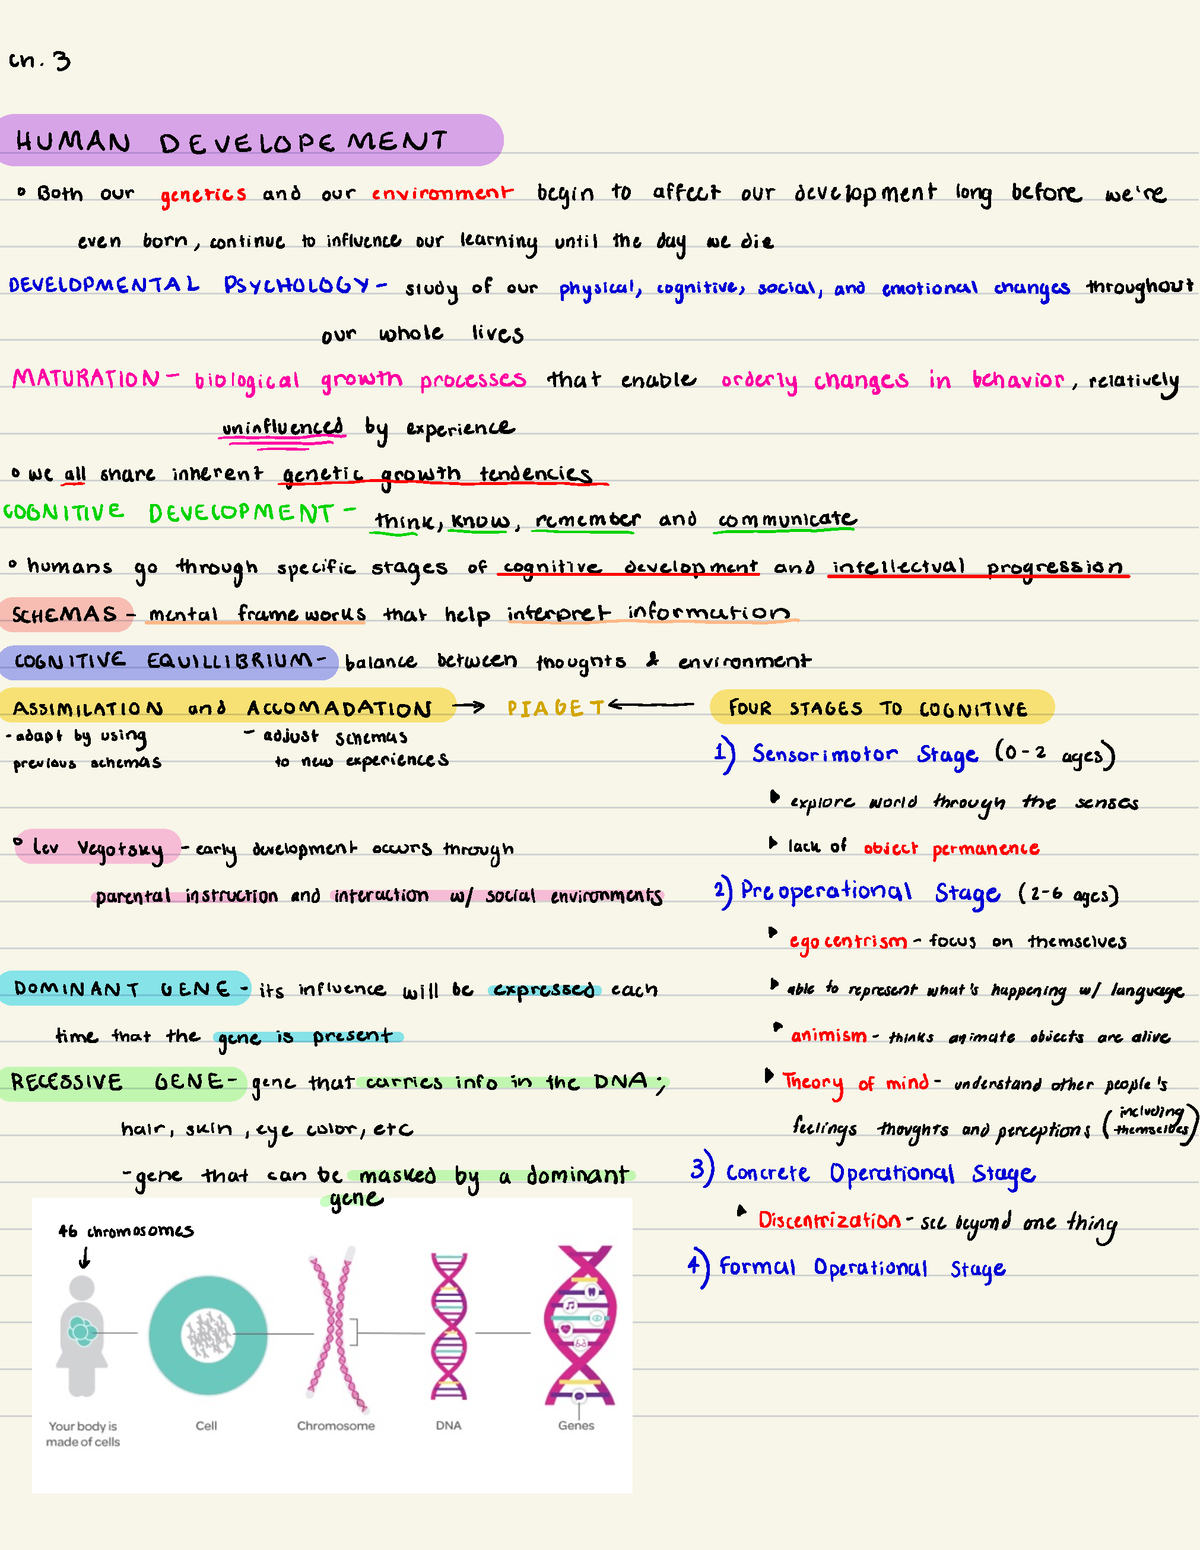 Ch. 3
HUMAN DEVELOPEMENT
° Both our genetics and our environment begin to affect our development long before we're
even born, continue to influence our learning until the day we die
DEVELOPMENTAL PSYCHOLOGY - study of our physical, cognitive, social, and emotional changes throughout
our whole lives
MATURATION - biological growth processes that enable orderly changes in behavior, relatively
uninfluenced by experience
° we all share inherent genetic growth tendencies
COGNITIVE DEVELOPMENT - think, know, remember and communicate
° humans go through specific stages of cognitive development and intellectual progression
SCHEMAS - mental frameworks that help interpret information
COGNITIVE EQUILLIBRIUM - balance between thoughts & environment
ASSIMILATION and ACCOMADATION → PIAGET ← FOUR STAGES TO COGNITIVE
- adapt by using
previous schemas
- adjust schemas
to new experiences
° Lev Vegotsky - early development occurs through
parental instruction and interaction w/ social environments
DOMINANT GENE - its influence will be expressed each
time that the gene is present
RECESSIVE GENE - gene that carries info in the DNA;
hair, skin, eye color, etc
- gene that can be masked by a dominant
gene
1) Sensorimotor Stage (0-2 ages)
▸ explore world through the senses
▸ lack of object permanence
2) Preoperational Stage (2-6 ages)
▸ egocentrism - focus on themselves
▸ able to represent what's happening w/ language
▸ animism - thinks animate objects are alive
▸ Theory of mind - understand other people's
feelings thoughts and perceptions (including themselves)
3) Concrete Operational Stage
▸ Discentrization - see beyond one thing
4) Formal Operational Stage
46 chromosomes
Your body is
made of cells
Cell
Chromosome
DNA
Genes